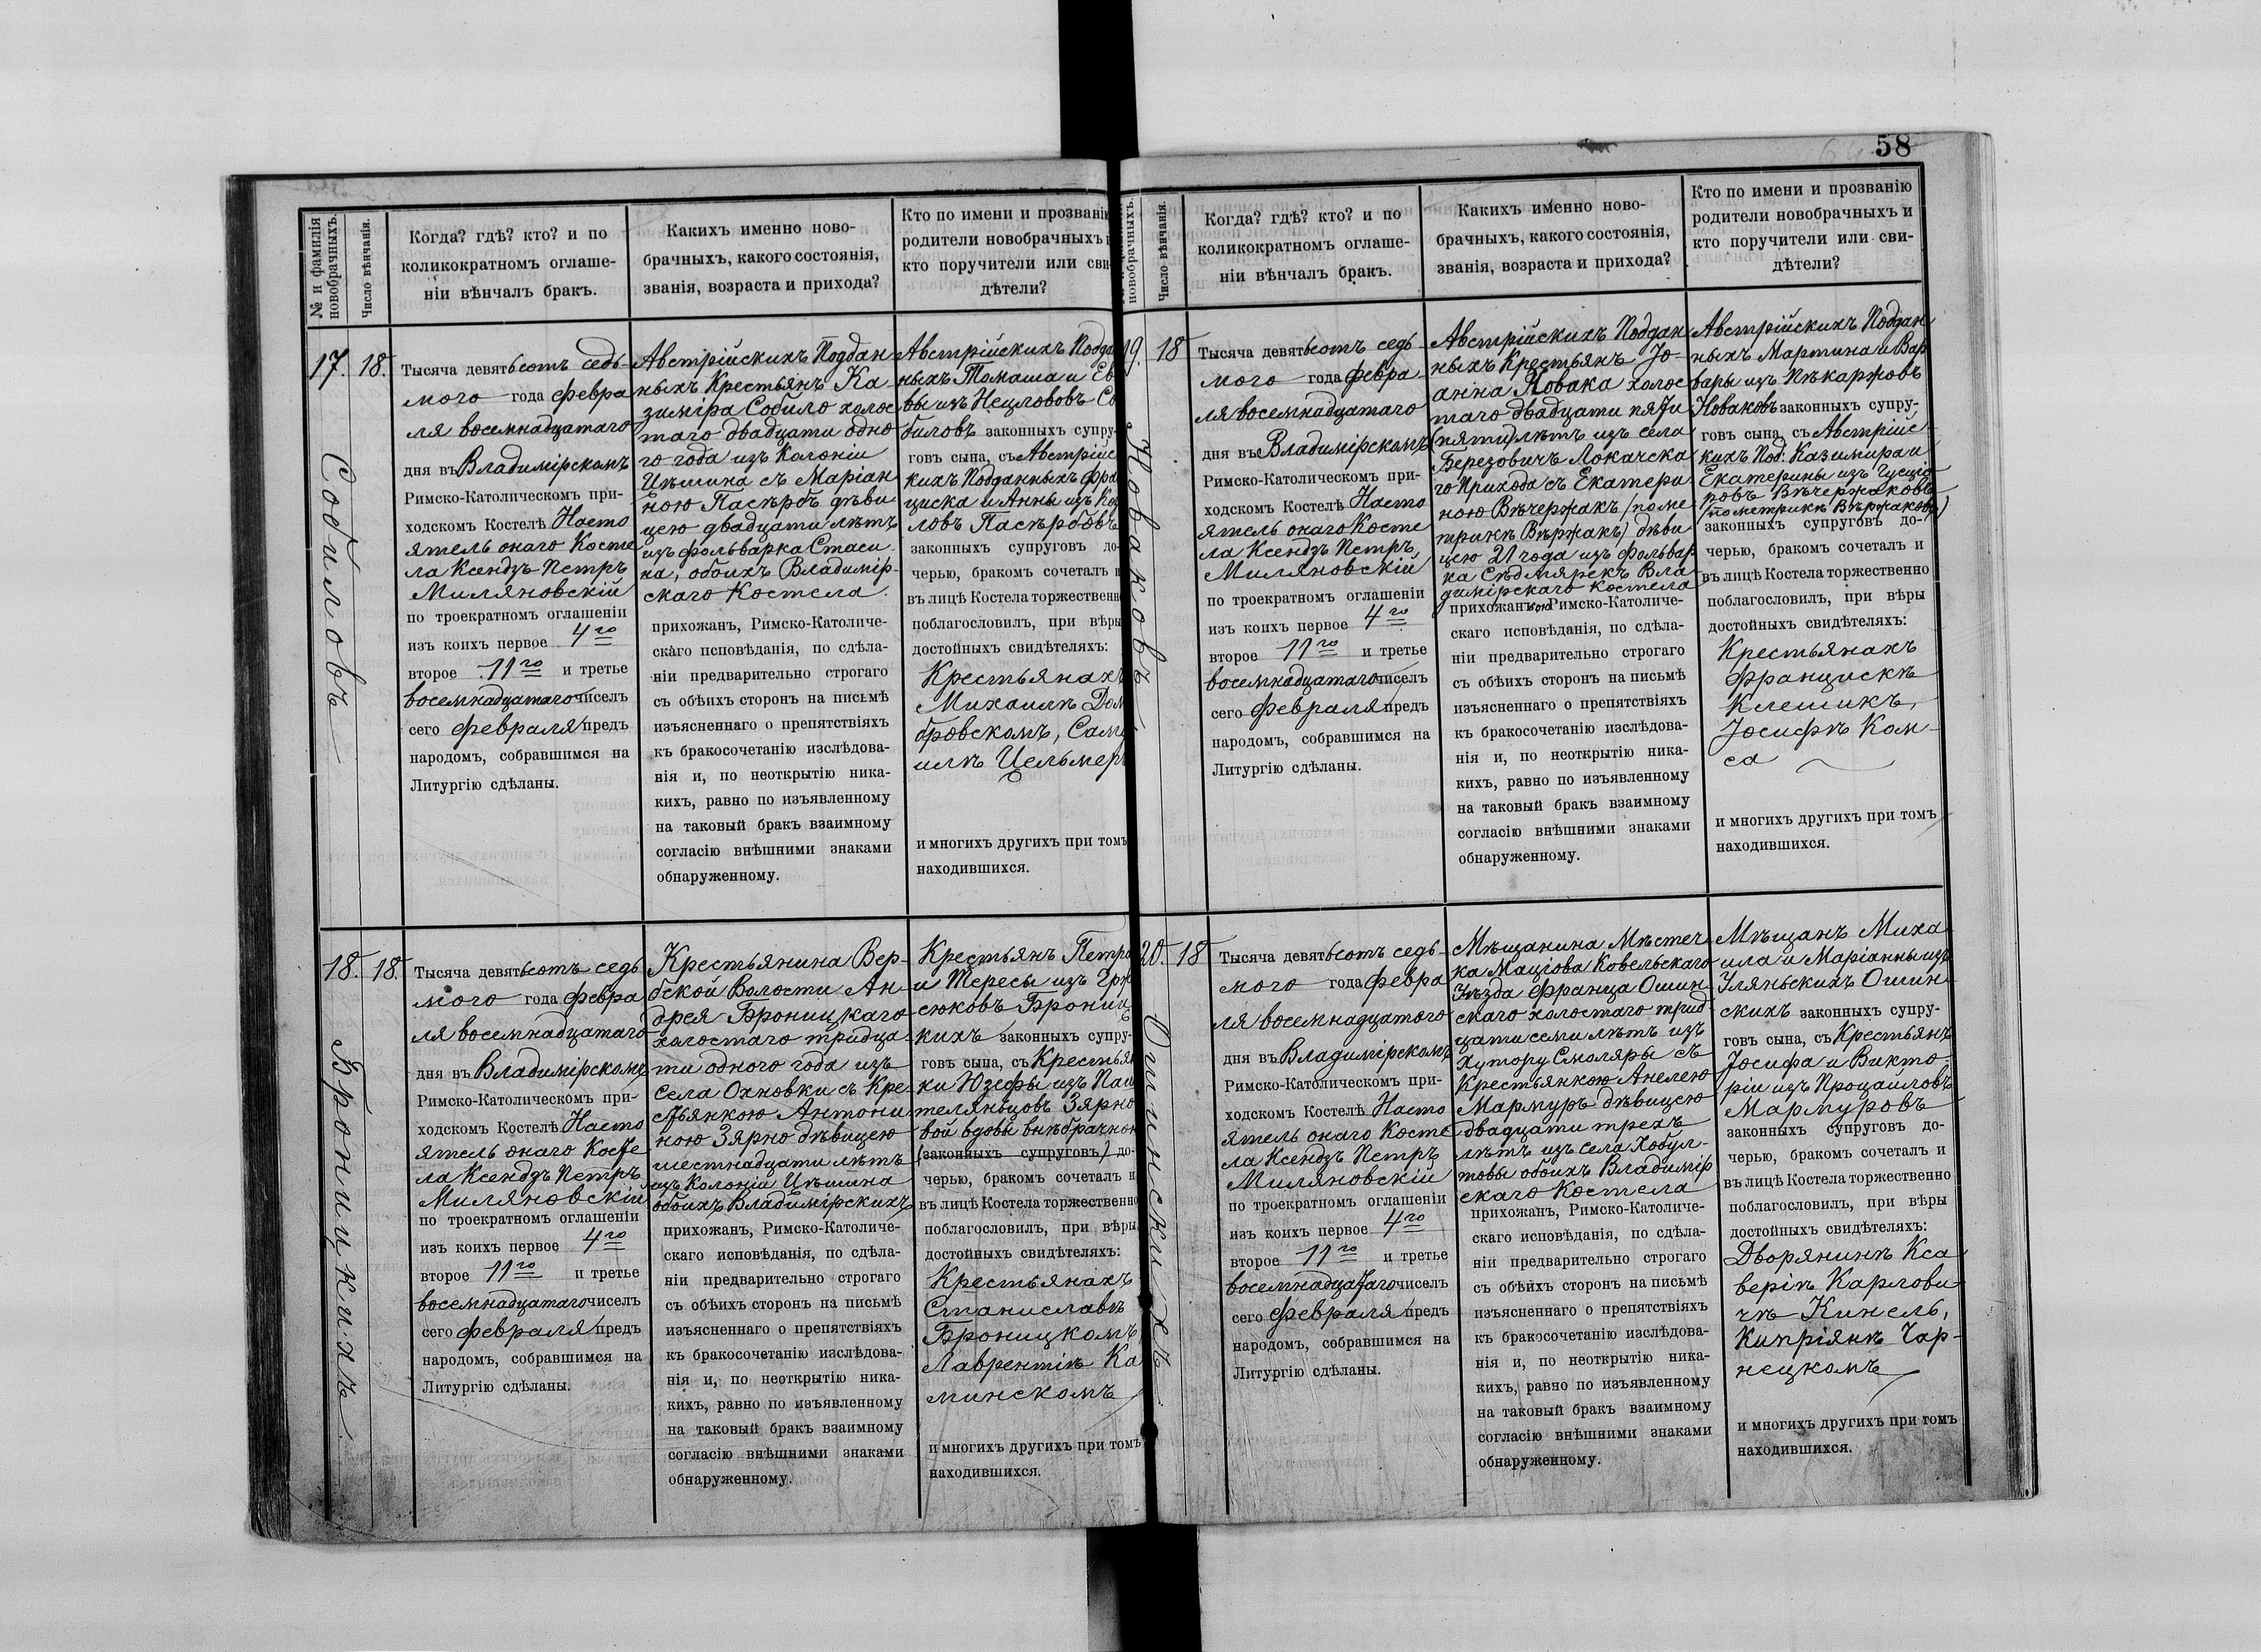 58
№ и фамилія
новобрачныхъ.
Число вѣнчанія.
Когда? гдѣ? кто? и по
коликократномъ оглаше-
ніи вѣнчалъ бракъ.
Какихъ именно ново-
брачныхъ, какого состоянія,
званія, возраста и прихода?
Кто по имени и прозванію
родители новобрачныхъ
кто поручители или сви-
дѣтели?
17.
18.
Собиловъ
Тысяча девятьсотъ седь-
мого года февра
ля восемнадцатаго
дня въ Владимірскомъ
Римско-Католическомъ при-
ходскомъ Костелѣ Насто
ятель онаго Косте
ла Ксендзъ Петръ
Миляновскій
по троекратномъ оглашеніи
изъ коихъ первое 4го
второе 11го и третье
восемнадцатаго чиселъ
сего февраля предъ
народомъ, собравшимся на
Литургію сдѣланы.
Австрійскихъ Поддан
ныхъ Крестьянъ Ка-
зиміра Собило холос
таго двадцати одно
го года изъ Колоніи
Цѣшина съ Маріан
ною Пасѣрбъ дѣви
цею двадцати лѣтъ
изъ фольварка Стаси-
на, обоихъ Владимір-
скаго Костела.
прихожанъ, Римско-Католиче-
скаго исповѣданія, по сдѣла-
ніи предварительно строгаго
съ обѣихъ сторонъ на письмѣ
изъясненнаго о препятствіяхъ
къ бракосочетанію изслѣдова-
нія и, по неоткрытію ника-
кихъ, равно по изъявленному
на таковый бракъ взаимному
согласію внѣшними знаками
обнаруженному.
Австрійскихъ Подда
ныхъ Томаша и Ев
вы изъ Нецлововъ Со
биловъ законныхъ супру-
говъ сына, съ Австрійс
кихъ Подданныхъ Фра
циска и Анны изъ
ловъ Пасѣрбовъ
законныхъ супруговъ до-
черью, бракомъ сочеталъ и
въ лицѣ Костела торжественно
поблагословилъ, при вѣры
достойныхъ свидѣтеляхъ:
Крестьянахъ
Михаилѣ Дом
бровскомъ, Сам
илѣ Цельмер
и многихъ другихъ при томъ
находившихся.
18.
18.
Броницкихъ
Тысяча девятьсотъ седь
мого года февра
ля восемнадцатаго
дня въ Владимірскомъ
Римско-Католическомъ при-
ходскомъ Костелѣ Насто
ятель онаго Косте
ла Ксендзъ Петръ
Миляновскій
по троекратномъ оглашеніи
изъ коихъ первое 4го
второе 11го и третье
восемнадцатаго чиселъ
сего февраля предъ
народомъ, собравшимся на
Литургію сдѣланы.
Крестьянина Вер-
бской Волости Ан-
дрея Броницкаго
холостаго тридца-
ти одного года изъ
села Охновки съ Кре
стьянкою Антони
ною Зярно дѣвицею
шестнадцати лѣтъ
изъ Колоніи Цѣшина
обоихъ Владимірскихъ
прихожанъ, Римско-Католиче-
скаго исповѣданія, по сдѣла-
ніи предварительно строгаго
съ обѣихъ сторонъ на письмѣ
изъясненнаго о препятствіяхъ
къ бракосочетанію изслѣдова-
нія и, по неоткрытію ника-
кихъ, равно по изъявленному
на таковый бракъ взаимному
согласію внѣшними знаками
обнаруженному.
Крестьянъ Петра
и Тересы изъ Грж
сюковъ Брониц
кихъ законныхъ супру-
говъ сына, съ Крестьян
ки Юзефы изъ Пан
теляньцовъ Зярно
вой вдовы внѣбрачною
(законныхъ супруговъ) до-
черью, бракомъ сочеталъ и
въ лицѣ Костела торжественно
поблагословилъ, при вѣры
достойныхъ свидѣтеляхъ:
Крестьянахъ
Станиславѣ
Броницкомъ
Лаврентіѣ Ка
минскомъ
и многихъ другихъ при томъ
находившихся.
новобрачныхъ.
Число вѣнчанія.
Когда? гдѣ? кто? и по
коликократномъ оглаше-
ніи вѣнчалъ бракъ.
Какихъ именно ново-
брачныхъ, какого состоянія,
званія, возраста и прихода?
Кто по имени и прозванію
родители новобрачныхъ и
кто поручители или сви-
дѣтели?
19.
18
Новаковъ
Тысяча девятьсотъ седь-
мого года февра
ля восемнадцатаго
дня въ Владимірскомъ
Римско-Католическомъ при-
ходскомъ Костелѣ Насто
ятель онаго Косте
ла Ксендзъ Петръ
Миляновскій
по троекратномъ оглашеніи
изъ коихъ первое 4го
второе 11го и третье
восемнадцатаго чиселъ
сего февраля предъ
народомъ, собравшимся на
Литургію сдѣланы.
Австрійскихъ Поддан
ныхъ Крестьянъ Іо-
анна Новака холос
таго двадцати пяти
(пяти) лѣтъ изъ села
Березовичъ Локачска
го Прихода съ Екатери
ною Вѣчержакъ (по ме
трикѣ Вѣржакъ) дѣви
цею 21 года изъ фольвар
ка Сѣдмярекъ Вла
димірскаго Костела
прихожанкою Римско-Католиче-
скаго исповѣданія, по сдѣла-
ніи предварительно строгаго
съ обѣихъ сторонъ на письмѣ
изъясненнаго о препятствіяхъ
къ бракосочетанію изслѣдова-
нія и, по неоткрытію ника-
кихъ, равно по изъявленному
на таковый бракъ взаимному
согласію внѣшними знаками
обнаруженному.
Австрійскихъ Поддан
ныхъ Мартина и Вар
вары изъ Пѣкаржовъ
Новаковъ законныхъ супру-
говъ сына, съ Австрійс
кихъ Под: Казимира и
Екатерины изъ Гусціо
ровъ Вѣчержаковъ
(по метрикѣ Вѣржаковъ)
законныхъ супруговъ до-
черью, бракомъ сочеталъ и
въ лицѣ Костела торжественно
поблагословилъ, при вѣры
достойныхъ свидѣтеляхъ:
Крестьянахъ
Францискѣ
Клешикъ,
Іосифѣ Ком-
са
и многихъ другихъ при томъ
находившихся.
20.
18
Ошинскихъ
Тысяча девятьсотъ седь-
мого года февра
ля восемнадцатого
дня въ Владимірскомъ
Римско-Католическомъ при-
ходскомъ Костелѣ Насто
ятель онаго Косте
ла Ксендзъ Петръ
Миляновскій
по троекратномъ оглашеніи
изъ коихъ первое 4го
второе 11го и третье
восемнадцатаго чиселъ
сего февраля предъ
народомъ, собравшимся на
Литургію сдѣланы.
Мѣщанина Мѣстеч
ка Маціова Ковельскаго
Уѣзда Франца Ошин
скаго холостаго трид
цати семи лѣтъ изъ
Хутору Смоляры съ
Крестьянкою Анелею
Мармуръ дѣвицею
двадцати трехъ
лѣтъ изъ села Хобул-
товы обоихъ Владимір
скаго Костела
прихожанъ, Римско-Католиче-
скаго исповѣданія, по сдѣла-
ніи предварительно строгаго
съ обѣихъ сторонъ на письмѣ
изъясненнаго о препятствіяхъ
къ бракосочетанію изслѣдова-
нія и, по неоткрытію ника-
кихъ, равно по изъявленному
на таковый бракъ взаимному
согласію внѣшними знаками
обнаруженному.
Мѣщанъ Миха
ила и Маріанны изъ
Уляньскихъ Ошин-
скихъ законныхъ супру-
говъ сына, съ Крестьянъ
Іосифа и Викто-
ріи изъ Процайловъ
Мармуровъ
законныхъ супруговъ до-
черью, бракомъ сочеталъ и
въ лицѣ Костела торжественно
поблагословилъ, при вѣры
достойныхъ свидѣтеляхъ:
Дворянинѣ Кса
веріѣ Карлови
чѣ Кинель,
Кипріянѣ Чар-
нецкомъ
и многихъ другихъ при томъ
находившихся.